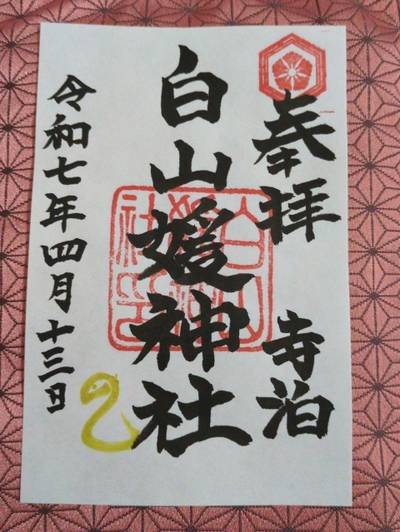 奉拝 寺泊
白山媛神社
令和七年四月十三日